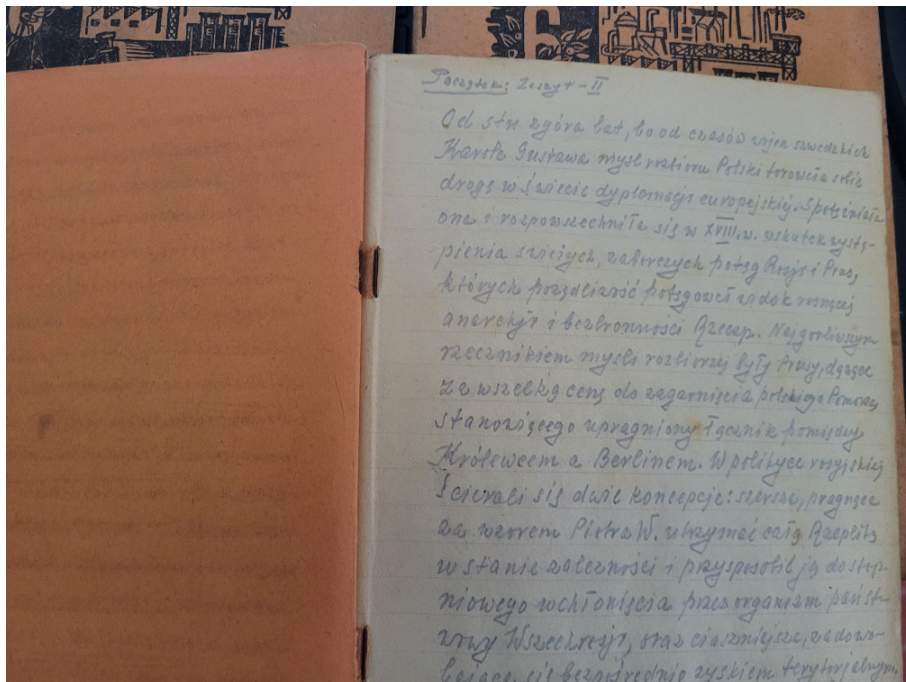 Początek: Zeszyt - II
Od stu zgórą lat, bo od czasów wojen szwedzkich
Karola Gustawa myśl rozbioru Polski torowała sobie
drogę w świecie dyplomacji europejskiej. Spotężniała
ona i rozpowszechniła się w XVIII. w. wskutek wystą-
pienia świeżych, zaborczych potęg Rosji i Prus,
których pożądliwość potęgował widok rosnącej
anarchji i bezbronności Rzecep. Najgorliwszym
rzecznikiem myśli rozbiorczej były Prusy, dążące
za wszelką cenę do zagarnięcia polskiego Pomorza,
stanowiącego upragniony łącznik pomiędzy
Królewcem a Berlinem. W polityce rosyjskiej
ścierali się dwie koncepcje: szersza, pragnąca
za wzorem Piotra W. utrzymać całą Rzeplitę
w stanie zależności i przysposobić ją do stop-
niowego wchłonięcia przez organizm państ-
wowy Wszechrosji, oraz ciaśniejsza, zadowo-
lająca się bezpośrednio zyskiem terytorjalnym.
6